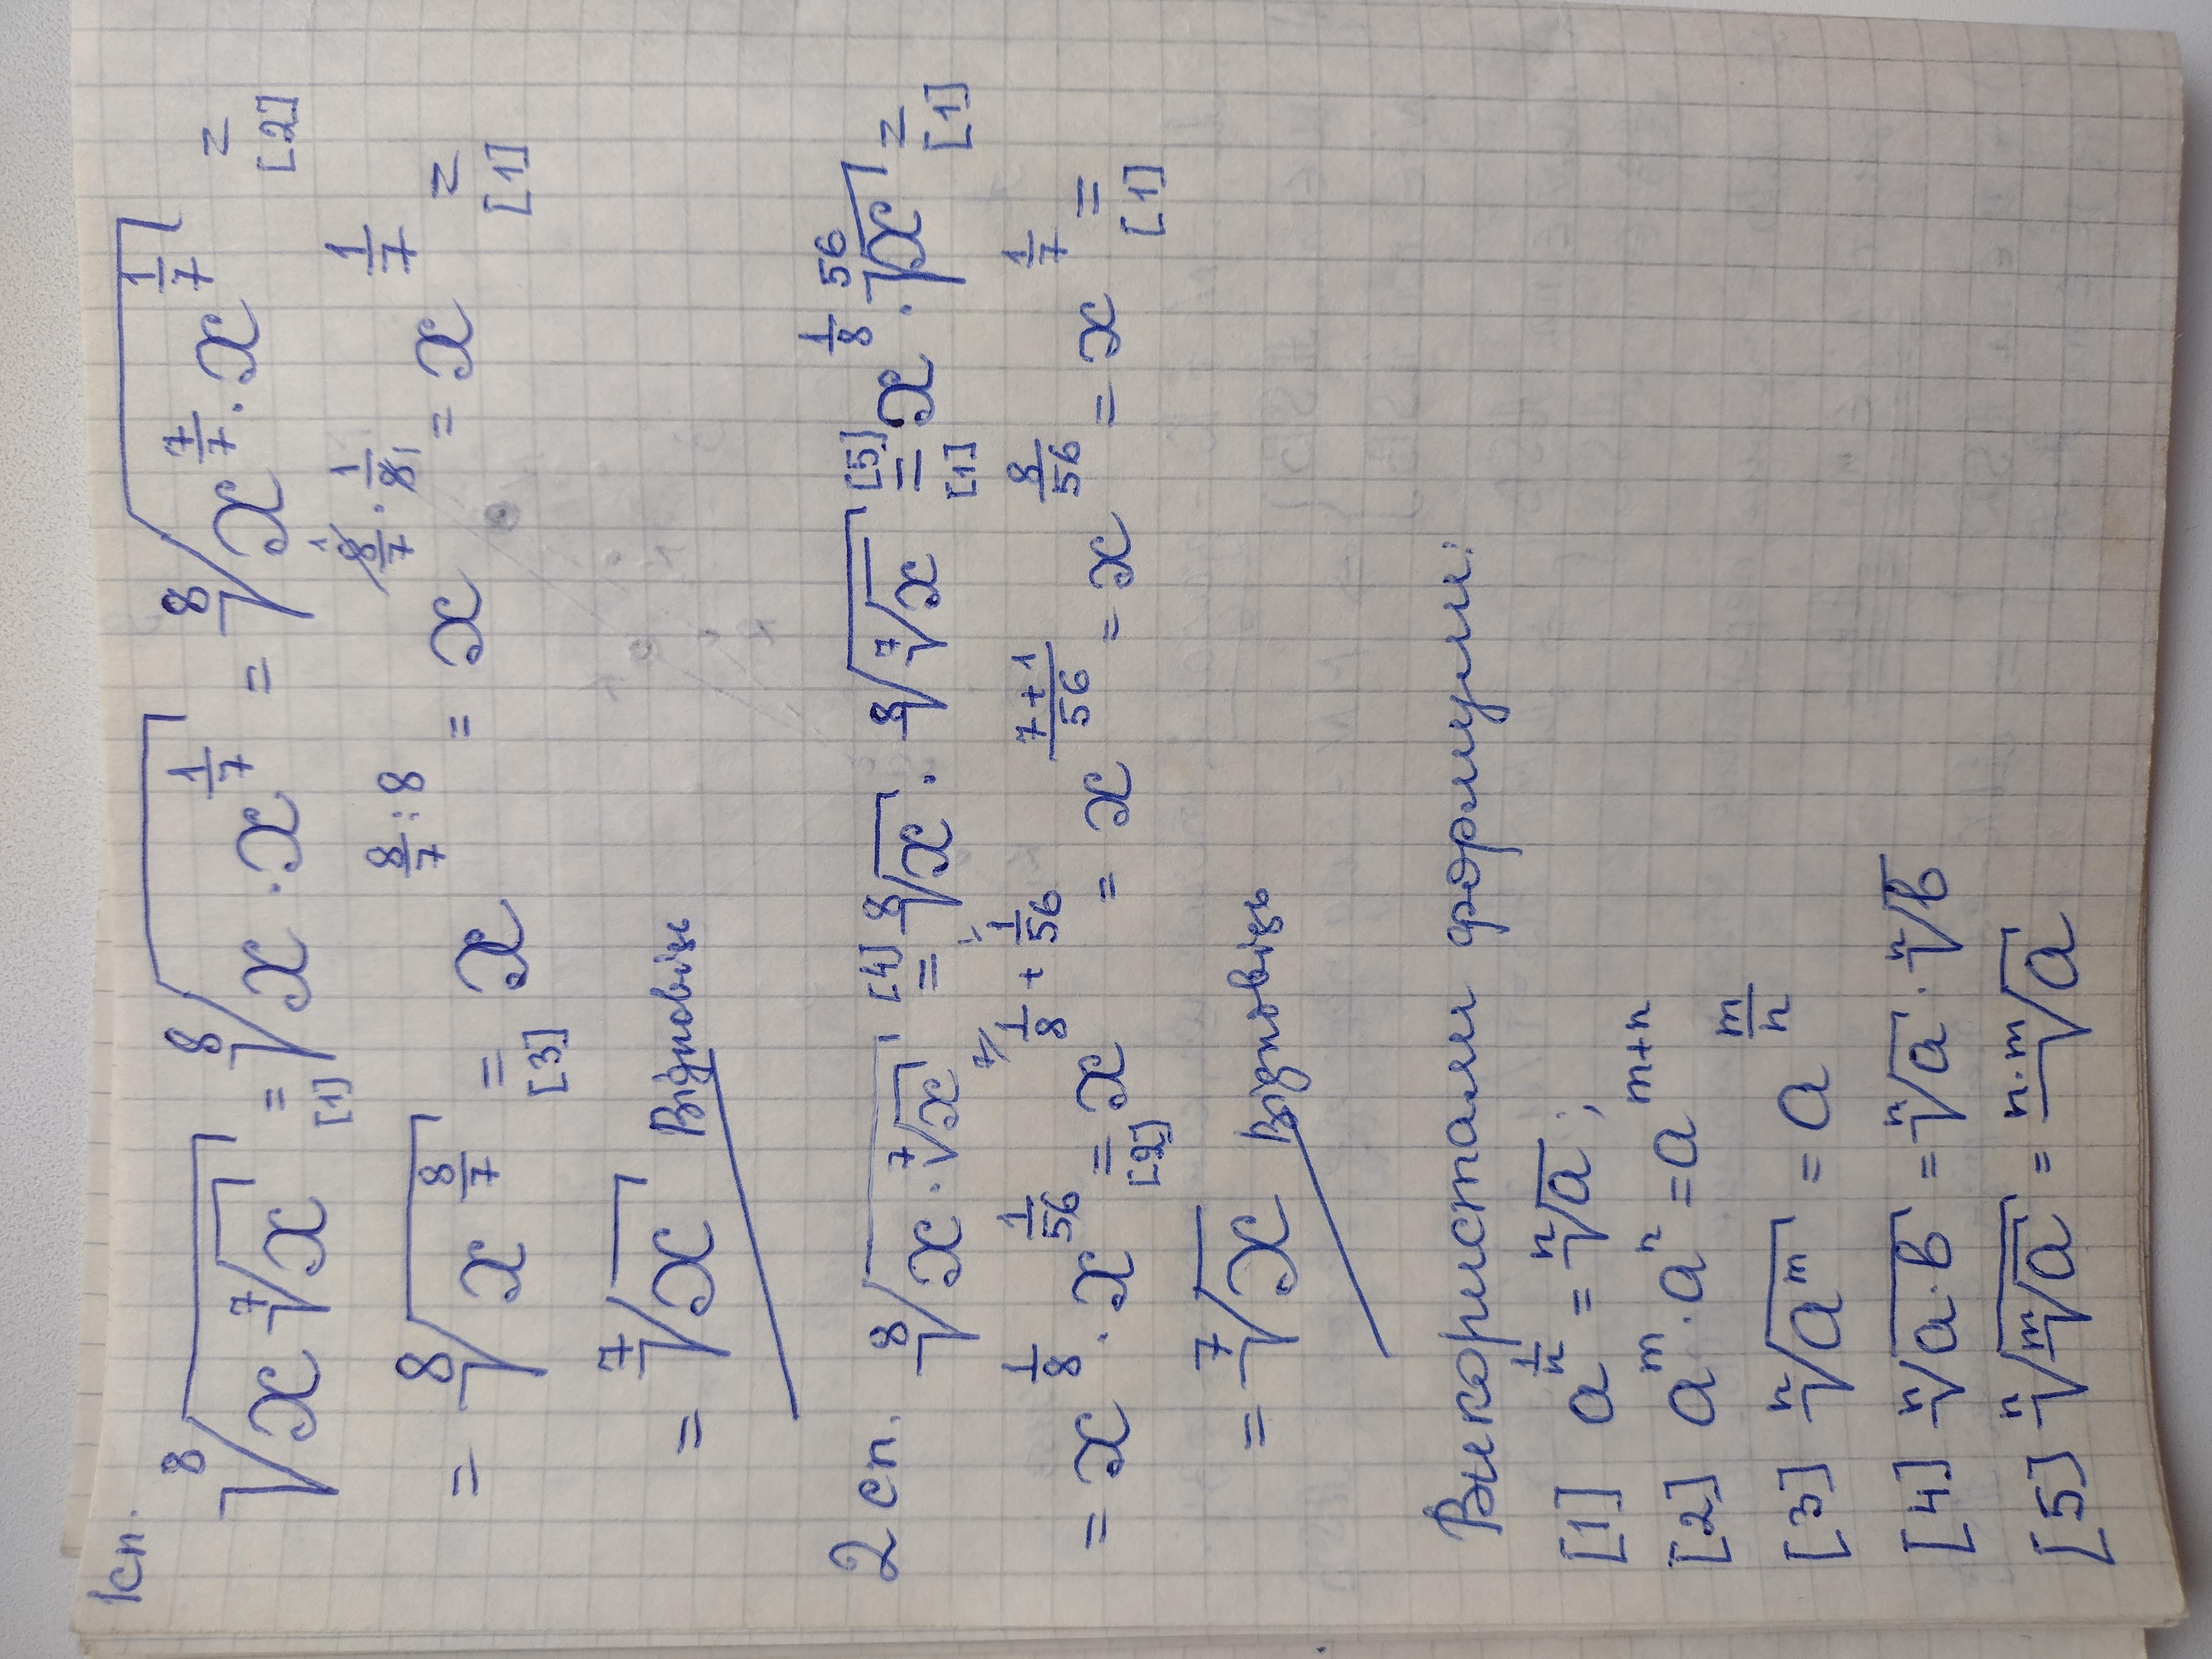 1сп.
⁸√(x ⁷√x) =[1] ⁸√(x · x^(1/7)) = ⁸√(x^(7/7) · x^(1/7)) =[2]
= ⁸√(x^(8/7)) =[3] x^(8/7 : 8) = x^(8/7 · 1/8) = x^(1/7) =[1]
= ⁷√x Відповідь
2 сп. ⁸√(x · ⁷√x) =[4] ⁸√x · ⁸√(⁷√x) =[5][1] x^(1/8) · ⁵⁶√x =[1]
= x^(1/8) · x^(1/56) =[2] x^(1/8 + 1/56) = x^((7+1)/56) = x^(8/56) = x^(1/7) =[1]
= ⁷√x Відповідь
Використали формули:
[1] a^(1/n) = ⁿ√a ;
[2] a^m · a^n = a^(m+n)
[3] ⁿ√(a^m) = a^(m/n)
[4] ⁿ√(a·b) = ⁿ√a · ⁿ√b
[5] ⁿ√(ᵐ√a) = ⁿ·ᵐ√a